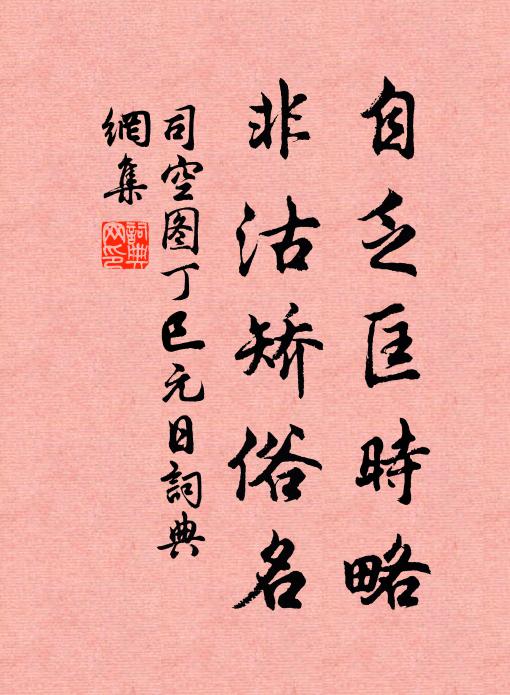 自乏匡時略
非沽矯俗名
司空图丁巳元日詞典
網集
詞典
网印